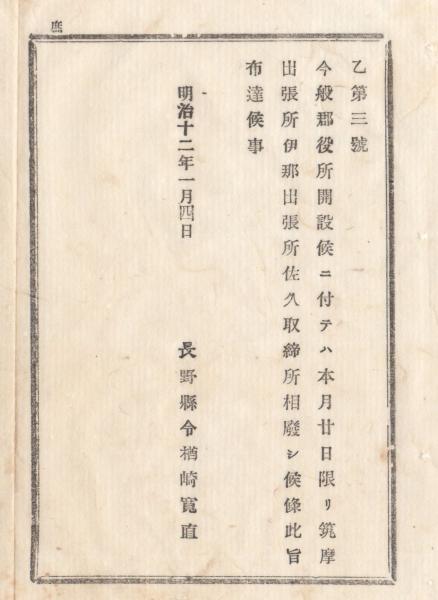 庶
乙第三號
今般郡役所開設候ニ付テハ本月廿日限リ筑摩
出張所伊那出張所佐久取締所相廢シ候條此旨
布達候事
明治十二年一月四日
長野縣令楢崎寬直